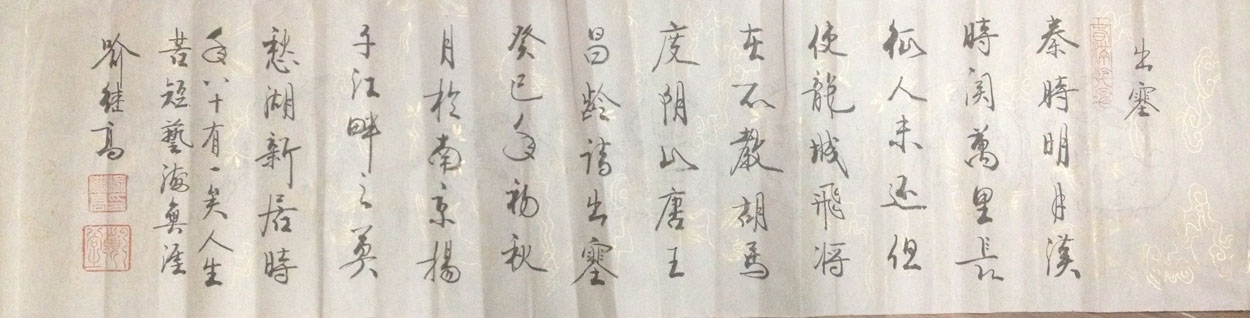 出塞
秦時明月漢
時関萬里長
征人未还但
使龍城飛将
在不教胡馬
度阴山唐王
昌龄詩出塞
癸巳年初秋
月於南京揚
子江畔之莫
愁湖新居時
年八十有一矣人生
苦短藝海無涯
喻継高